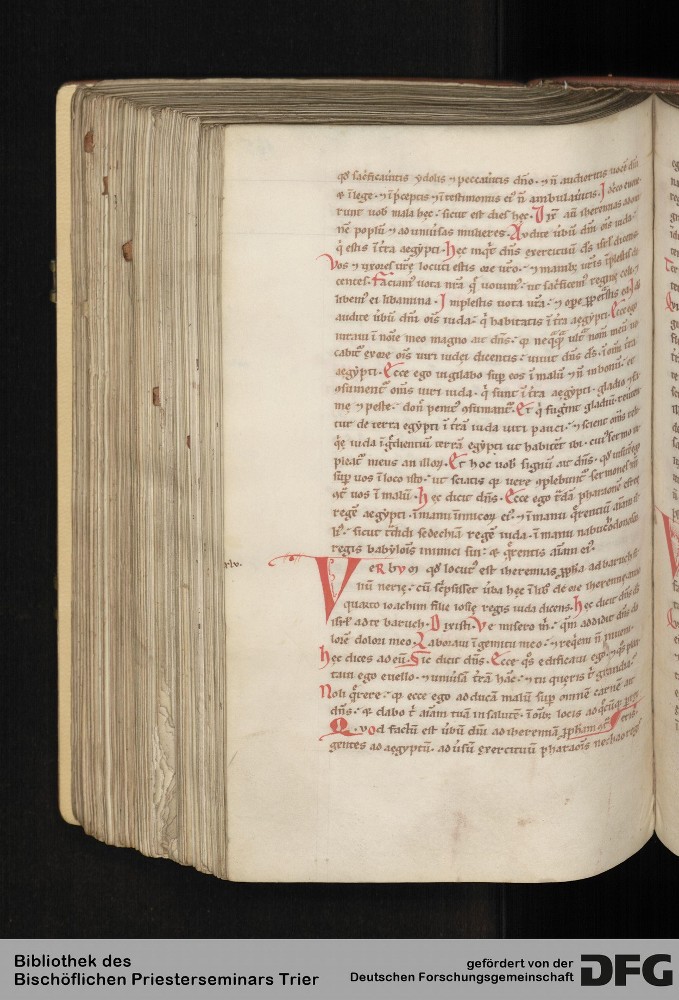 qd sacrificaveritis ydolis ⁊ peccaveritis dño. ⁊ ñ audieritis vocẽ dñi
⁊ ĩ lege. ⁊ ĩ p̃ceptis ⁊ ĩ testimoniis eiꝰ ñ ambulav̾itis. Idc̃co even̾
runt vob mala hęc. sicut est dies hęc. Dix̃ aũ iheremias ad om
nẽ poplũ ⁊ ad univ̾sas mulieres. Audite v̾bũ dñi oĩs iuda
q̃ estis ĩ t̾ra aegẏpti. Hęc inqͥt dñs exercituũ dˢ isrl dicens
Vos ⁊ uxores vr̃ę locuti estis ore vr̃o. ⁊ manibꝫ vr̃is ĩplestis di
centes. Faciamꝰ vota nr̃a q̃ vovimꝰ. ut sacrificemꝰ reginę celi ⁊
libemꝰ ei libamina. Implestis vota vr̃a. ⁊ ope ꝑpetrastis ea. Ido
audite v̾bũ dñi oĩs iuda. q̃ habitatis ĩ t̾ra aegẏpti. Ecce ego
iuravi ĩ noĩe meo magno ait dñs. qꝫ neqͣqͣ ultͣ nom̃ meũ vo
cabitͬ ex ore oĩs viri iudęi dicentis. vivit dñs dˢ. ĩ om̃i t̾ra
aegẏpti. Ecce ego vigilabo suꝑ eos ĩ malũ ⁊ ñ in bonũ. et
ꝯsumentͬ om̃s viri iuda. q̃ sunt ĩ t̾ra aegẏpti. gladio ⁊ fa
mę ⁊ peste. donͨ penitꝰ ꝯsumantͬ. Et q̃ fug̾int gladiũ. rev̾ten
tur de terra egẏpti ĩ t̾rã iuda viri pauci. ⁊ scient om̃s reli
qͥę iuda ĩg̾dientiũ terrã egẏpti ut habitẽt ibi. cuiꝰ sermo cõ
pleatͬ meus an illoꝝ. Et hoc vob signũ ait dñs. qd visitẽ ego
suꝑ vos ĩ loco isto. ut sciatis qꝫ vere ꝯplebuntͬ sermones mei
ꝯtͣ vos ĩ malũ. Hęc dicit dñs. Ecce ego tͣdã pharaonẽ efree
regẽ aegẏpti. ĩ manu inimicoꝝ eiꝰ. ⁊ ĩ manu q̃rentiũ aĩam il
liꝰ. sicut tͣdidi sedechiã regẽ iuda. ĩ manu nabuchodonosor
regis babẏloĩs inimici sui. ⁊ q̃rentis aĩam eiꝰ.
xlv. VERBVM qd locutꝰ est iheremias ꝓph̃a ad baruch fi
liũ nerię. cũ sc̃psisset v̾ba hęc ĩ libͦ de ore iheremię. anno
quarto ioachim filii iosię regis iuda dicens. Hęc dicit dñs dˢ
isrl ad te baruch. Dixisti. Vę misero m̃. qm̃ addidit dñs do
lorẽ dolori meo. Laboravi ĩ gemitu meo. ⁊ reqͥem ñ inveni.
Hęc dices ad eũ. Sic dicit dñs. Ecce qͦs edificavi ego. ⁊ qͦs plan
tavi ego evello. ⁊ univ̾sã t̾rã hãc. ⁊ tu queris t̾ grandia.
Noli q̃rere. qꝫ ecce ego adducã malũ suꝑ omnẽ carnẽ ait
dñs. ⁊ dabo t̾ aĩam tuã in salutẽ. ĩ oĩbꝫ locis ad q̃cũqꝫ ꝑrex̃
Qvod factũ est v̾bũ dñi ad iheremiã ꝓph̃am ꝯtͣ eris.
gentes ad aegẏptũ. ad v̾sũ exercituũ pharaoĩs nechao regis
Bibliothek des
Bischöflichen Priesterseminars Trier
gefördert von der
Deutschen Forschungsgemeinschaft
DFG